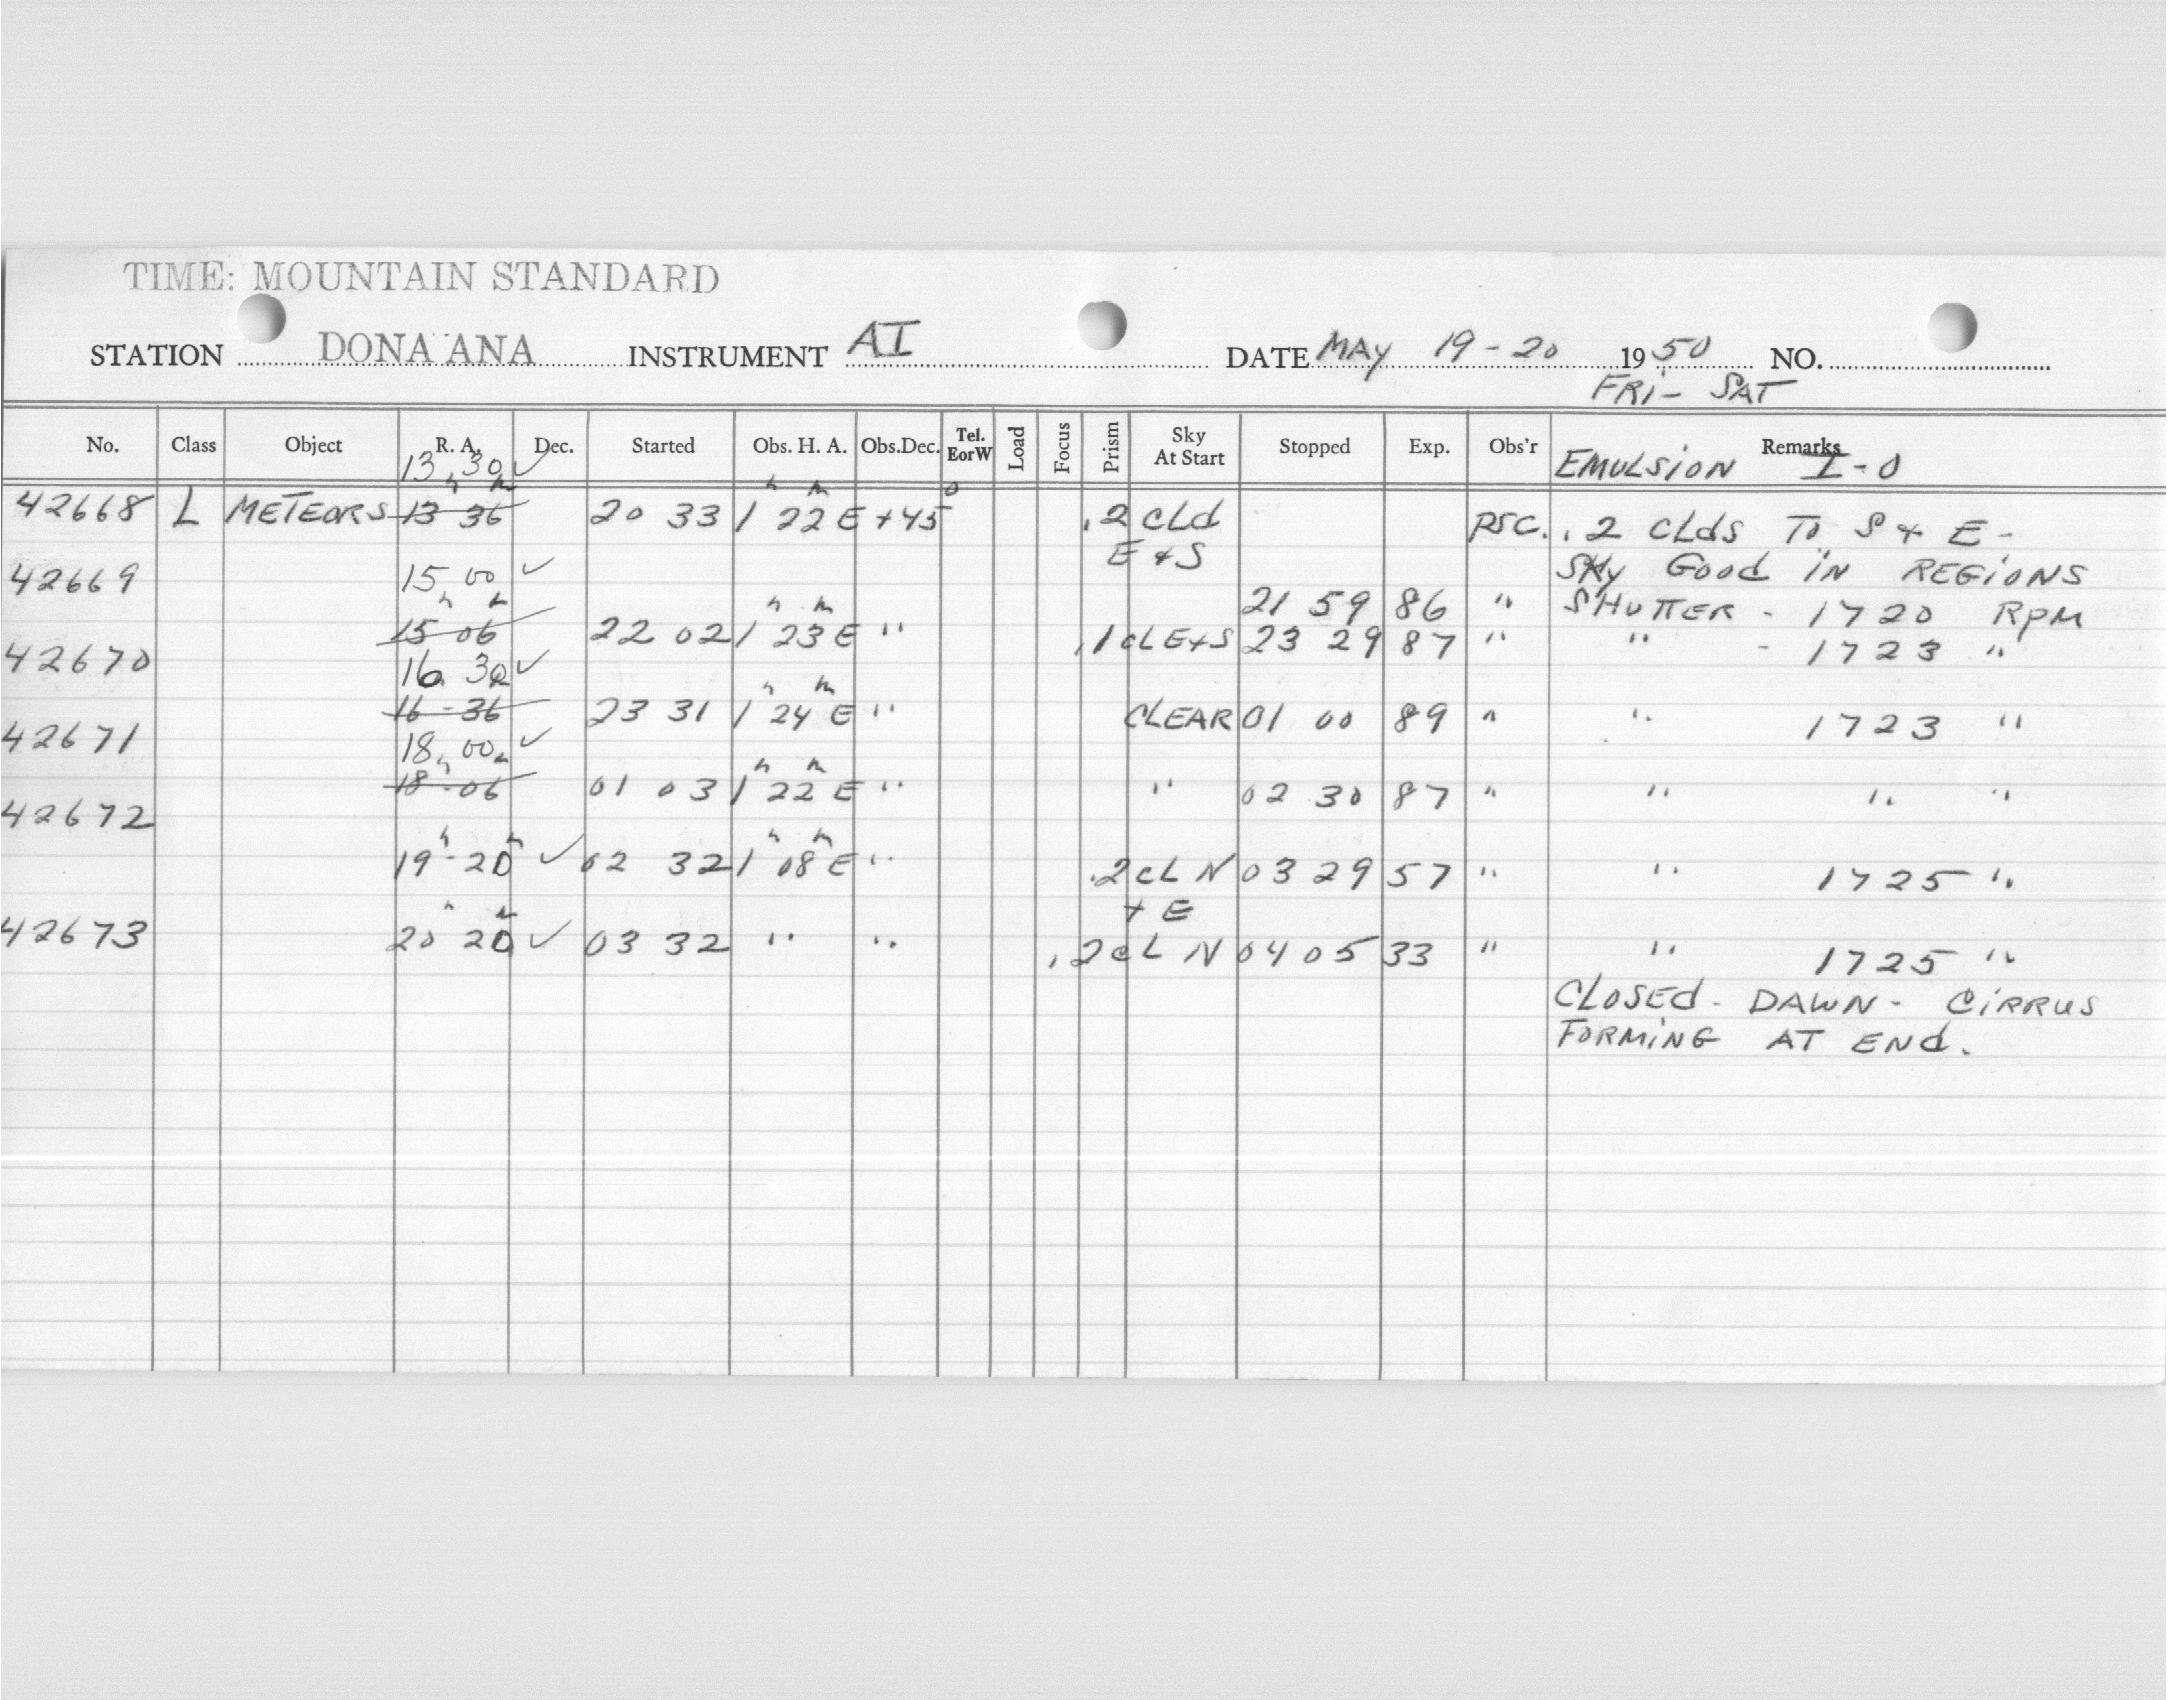 TIME: MOUNTAIN STANDARD
STATION DONA ANA INSTRUMENT AI DATE MAY 19-20 1950 NO.
FRI- SAT
No. Class Object R. A. Dec. Started Obs. H. A. Obs.Dec. Tel. EorW Load Focus Prism Sky At Start Stopped Exp. Obs'r Remarks
13 30 ✓ EMULSION I-O
42668 L METEORS 13 36 20 33 1h 22m E +45° .2 CLd RSC. .2 CLdS TO S + E -
E + S SKY GOOD IN REGIONS
42669 15 00 ✓
21 59 86 " SHUTTER - 1720 RPM
15h 06m 22 02 1h 23m E " .1 CL E+S 23 29 87 " " - 1723 "
42670 16 30 ✓
16 - 36 23 31 1h 24m E " CLEAR 01 00 89 " " 1723 "
42671 18 00 ✓
18h - 06m 01 03 1h 22m E " " 02 30 87 " " " "
42672
19h - 20m ✓ 02 32 1h 08m E " .2 CL N 03 29 57 " " 1725 "
+ E
42673 20h 20m ✓ 03 32 " " .2 CL N 04 05 33 " " 1725 "
CLOSED - DAWN - CIRRUS
FORMING AT END.